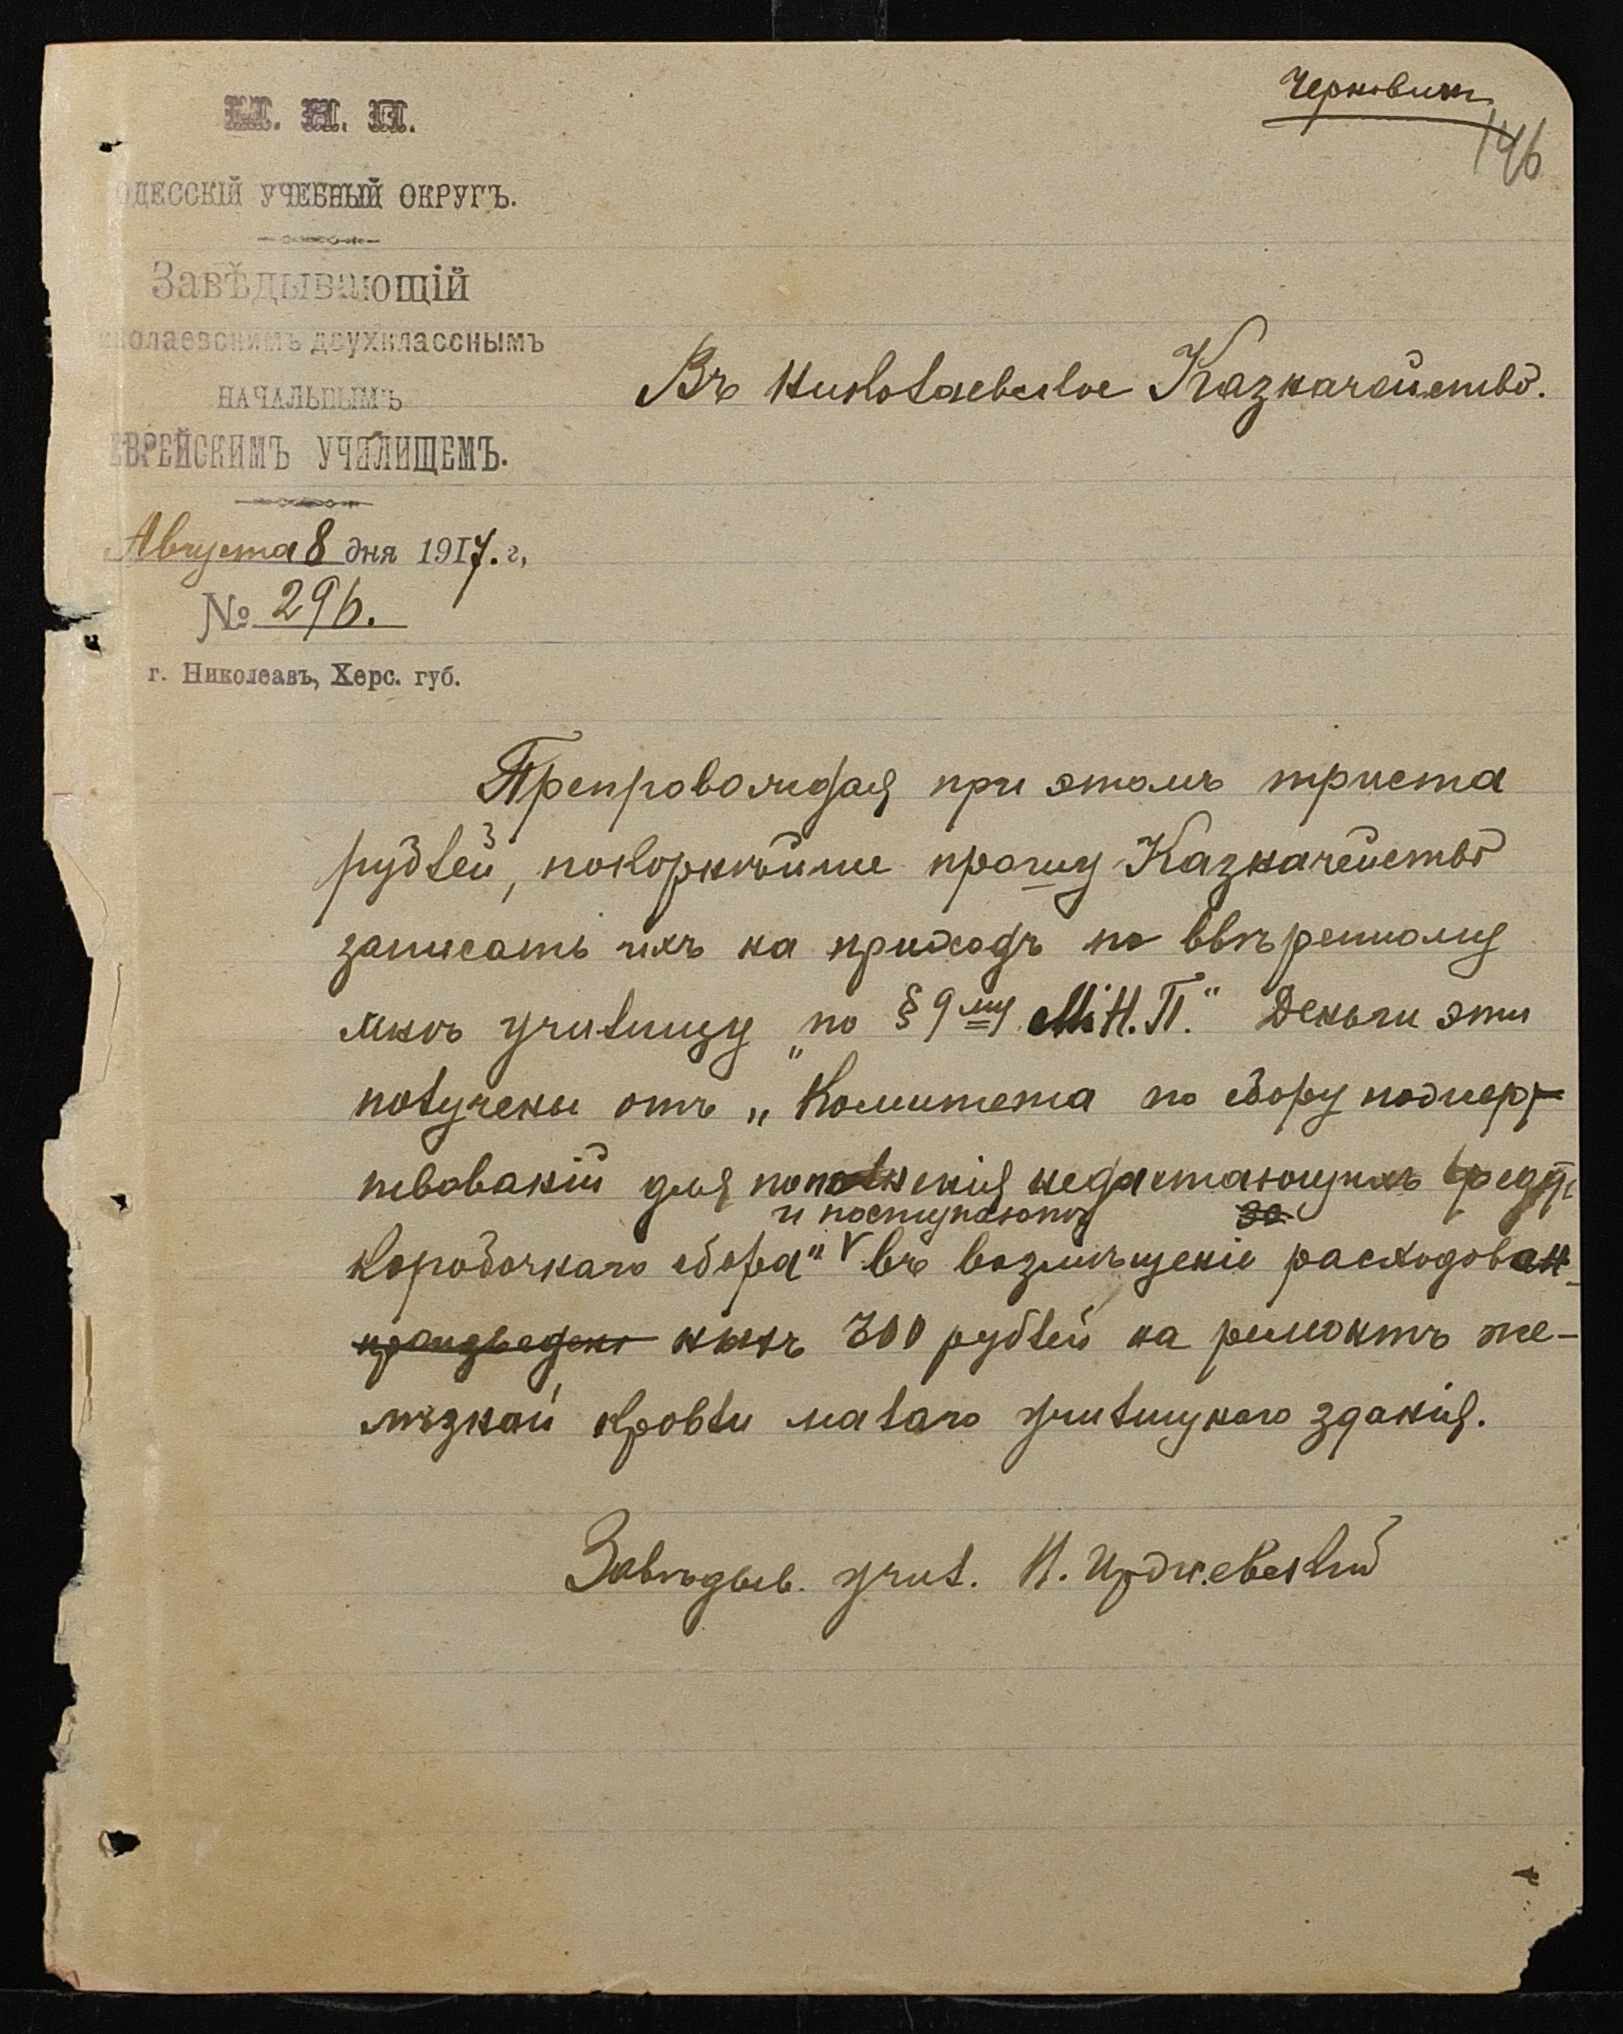 Черновикъ
146
М. Н. П.
ОДЕССКІЙ УЧЕБНЫЙ ОКРУГЪ.
Завѣдывающій
николаевскимъ двухкласснымъ
НАЧАЛЬНЫМЪ
ЕВРЕЙСКИМЪ УЧИЛИЩЕМЪ.
Августа 8 дня 1917. г,
№ 296.
г. Николеавъ, Херс. губ.
Въ Николаевское Казначейство.
Препровождая при этомъ триста
рублей, покорнѣйше прошу Казначейство
записать ихъ на приходъ по ввѣренному
мнѣ училищу „по § 9му М.Н.П." Деньги эти
получены отъ „Комитета по сбору пожер-
твованій для пополненія недостающихъ средствъ
и поступаютъ
коробочнаго сбора" въ возмѣщеніе расходован-
ныхъ 300 рублей на ремонтъ же-
лѣзной кровли малаго училищнаго зданія.
Завѣдыв. учил.